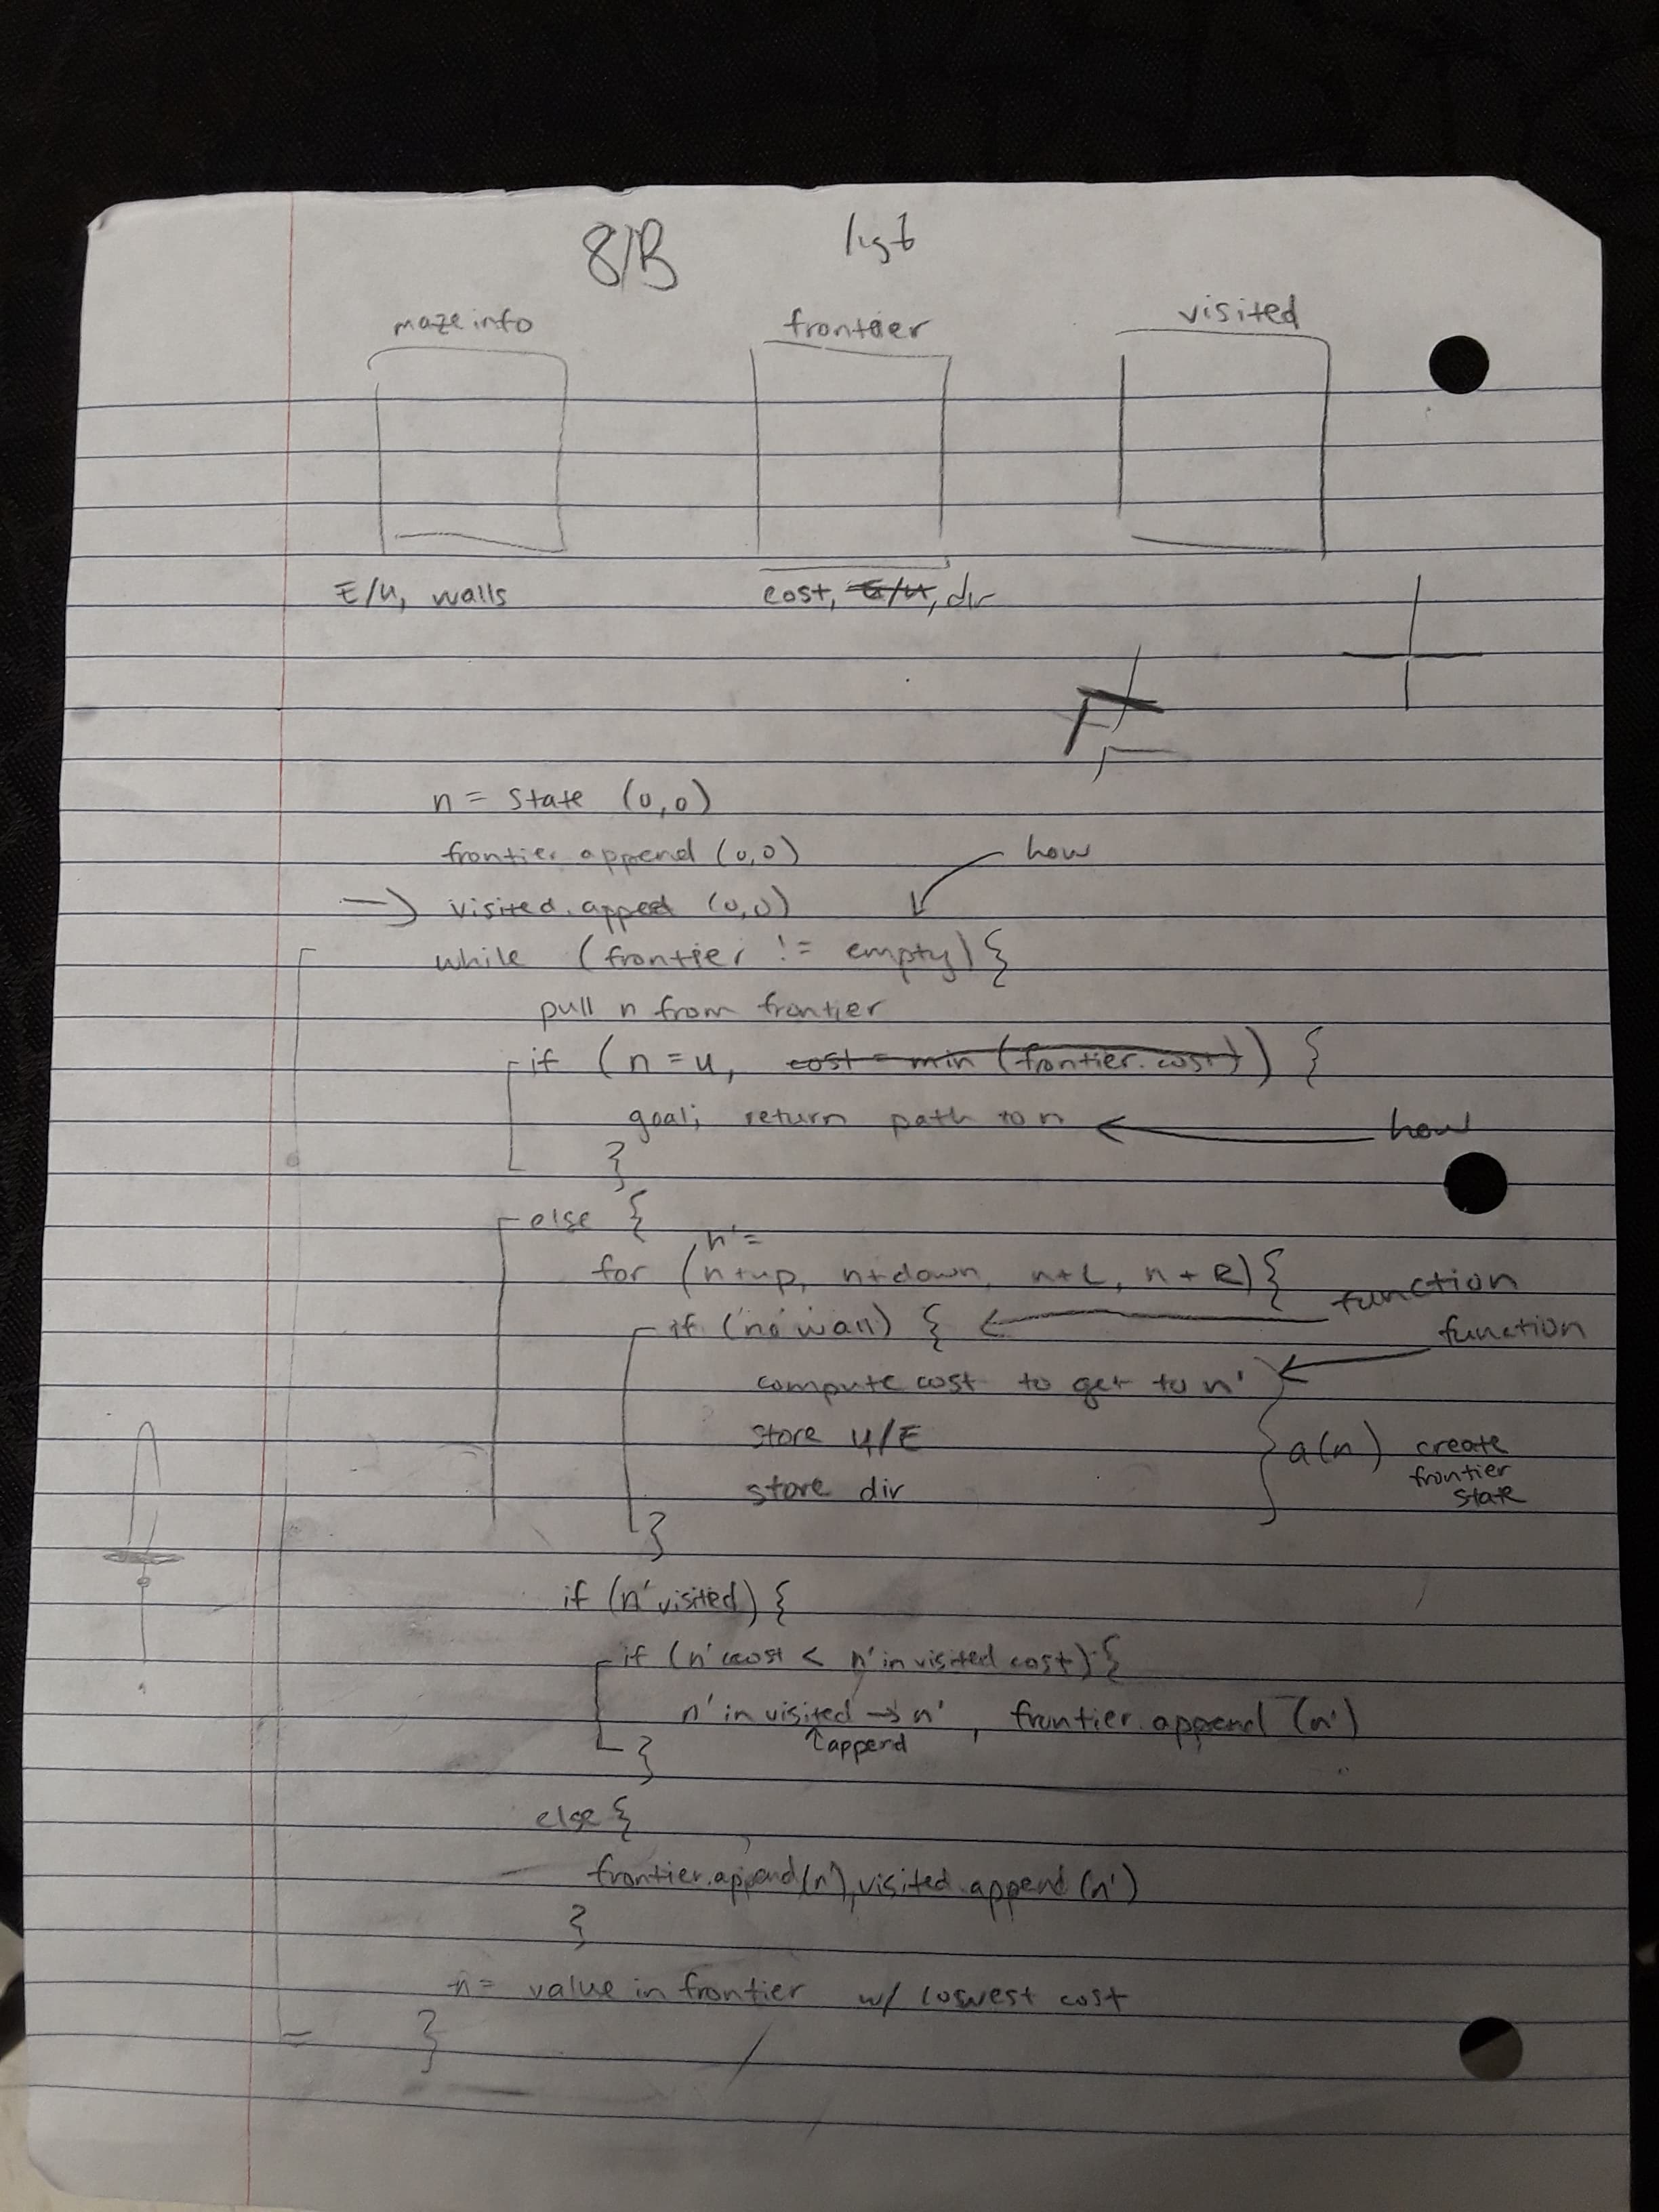 8/B list
maze info frontier visited
E/U, walls cost, E/U, dir
n = state (0,0)
frontier.append (0,0) how
→ visited.apped (0,0)
while (frontier != empty) {
pull n from frontier
if (n = u, cost = min (frontier.cost)) {
goal; return path to n ← how
}
else {
n' =
for (n+up, n+down, n+L, n+R) {
if (no wall) { ← function
compute cost to get to n' ← function
store U/E a(n) create
store dir frontier
state
}
if (n' visited) {
if (n' cost < n' in visited cost) {
n' in visited → n', frontier.append (n')
↑append
}
else {
frontier.append(n'), visited.append (n')
}
n = value in frontier w/ lowest cost
}